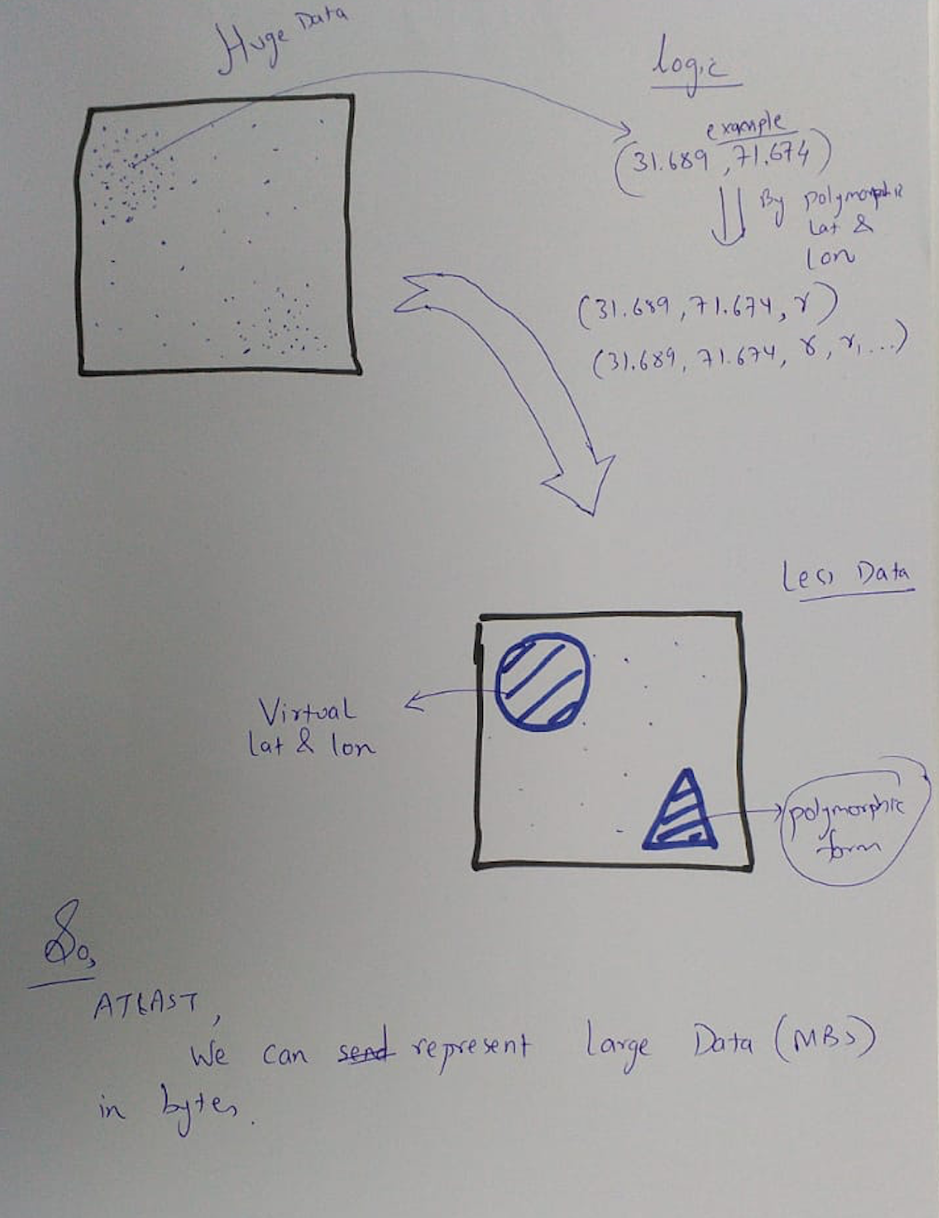 Huge Data
logic
example
(31.689, 71.674)
By polymorphic
Lat &
Lon
(31.689, 71.674, r)
(31.689, 71.674, r, r, ...)
Less Data
Virtual
lat & lon
polymorphic
form
So,
ATLAST,
We can send represent large Data (MBS)
in bytes.